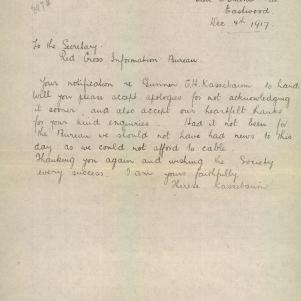 Eastwood
Dec 4th 1917.
To the Secretary.
Red Cross Information Bureau.
Your notification re Gunner G.H. Kassebaum to hand
will you please accept apologies for not acknowledging
it sooner and also accept our heartfelt thanks
for your kind enquiries. Had it not been for
the Bureau we should not have had news to this
day as we could not afford to cable.
Thanking you again and wishing the Society
every success. I am yours faithfully
Therese Kassebaum